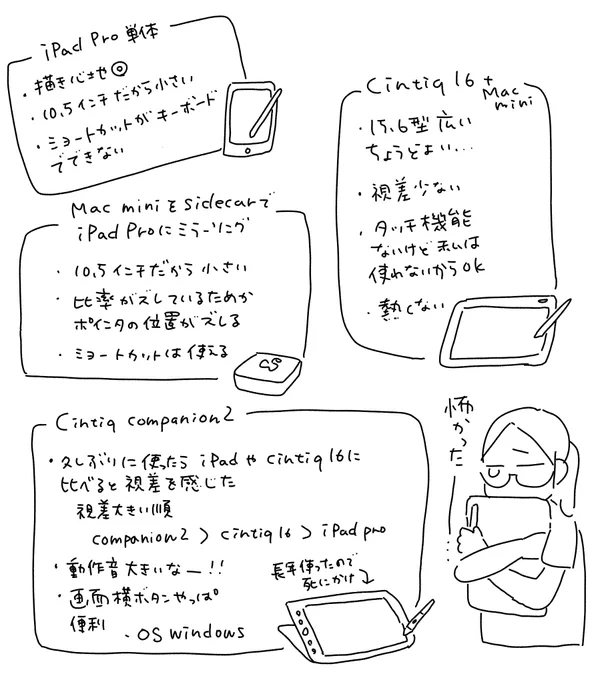 iPad Pro 単体
・描き心地◎
・10.5インチだから小さい
・ショートカットがキーボード
でできない
Cintiq 16 +
Mac
mini
・15.6型 広い
ちょうどよい...
・視差少ない
・タッチ機能
ないけど私は
使わないからOK
・熱くない
Mac miniをsidecarで
iPad Proにミラーリング
・10.5インチだから小さい
・比率がズレているためか
ポインタの位置がズレる
・ショートカットは使える
Cintiq companion2
・久しぶりに使ったら iPadや cintiq16に
比べると視差を感じた
視差大きい順
companion2 > cintiq16 > iPad pro
・動作音大きいなー!!
・画面横ボタンやっぱ
便利
・OS windows
長年使ったので
死にかけ
怖かった…